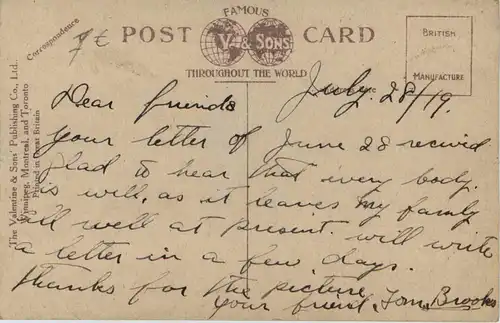 FAMOUS
POST CARD
V. & SONS
THROUGHOUT THE WORLD
BRITISH
MANUFACTURE
Correspondence
7 €
The Valentine & Sons' Publishing Co., Ltd.,
Winnipeg, Montreal, and Toronto
Printed in Great Britain
July. 28/19.
Dear friends
your letter of June 28 recivd
glad to hear that every body.
is will, as it leaves my family
all well at present. will write
a letter in a few days.
thanks for the picture
your friend, Tom. Brooks